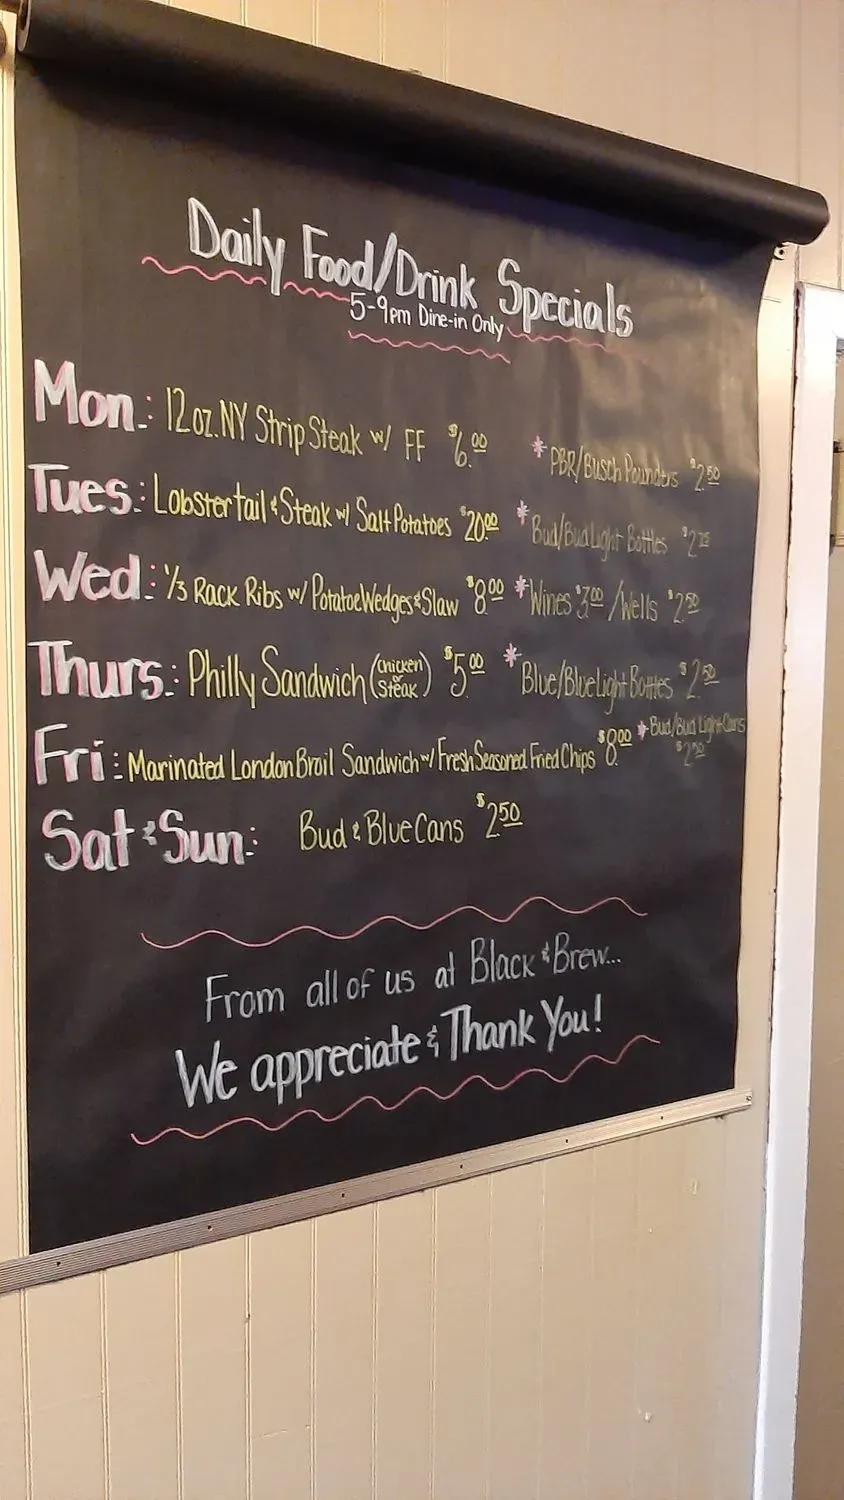 Daily Food/Drink Specials
5-9pm Dine-in Only
Mon.: 12oz. NY Strip Steak w/ FF $6.00 *PBR/Busch Pounders $2.50
Tues.: Lobster tail & Steak w/ Salt Potatoes $20.00 *Bud/Bud Light Bottles
Wed.: 1/3 Rack Ribs w/ Potatoe Wedges & Slaw $8.00 *Wines $3.00/Wells $2.50
Thurs.: Philly Sandwich (Chicken or Steak) $5.00 *Blue/Blue Light Bottles $2.50
Fri: Marinated London Broil Sandwich w/ Fresh Seasoned Fried Chips $8.00 *Bud/Bud Light Cans
Sat & Sun: Bud & Blue Cans $2.50
From all of us at Black & Brew...
We appreciate & Thank You!